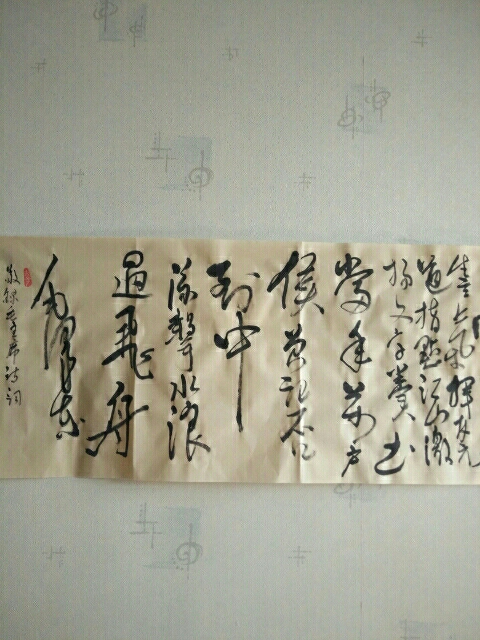 生意气挥斥方
遒指点江山激
扬文字粪土
当年万户
侯曾记否
到中
流击水浪
遏飞舟
毛泽东
敬録主席诗词